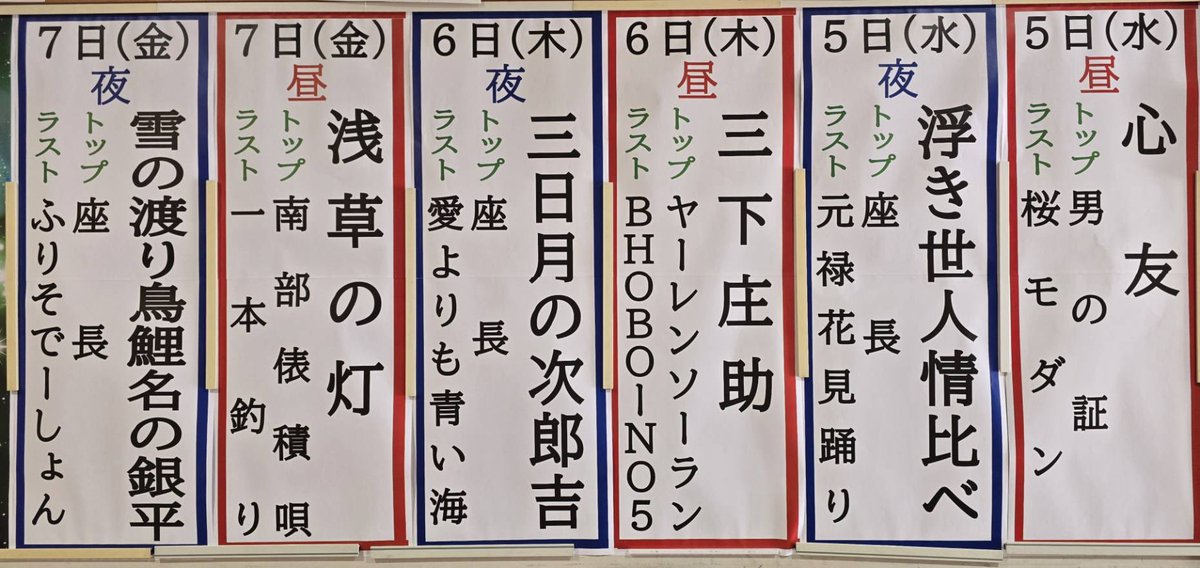 5日(水)
昼
心友
トップ 男の証
ラスト 桜モダン
5日(水)
夜
浮き世人情比べ
トップ 座長
ラスト 元禄花見踊り
6日(木)
昼
三下庄助
トップ ヤーレンソーラン
ラスト BHOBOINO5
6日(木)
夜
三日月の次郎吉
トップ 座長
ラスト 愛よりも青い海
7日(金)
昼
浅草の灯
トップ 南部俵積唄
ラスト 一本釣り
7日(金)
夜
雪の渡り鳥鯉名の銀平
トップ 座長
ラスト ふりそでーしょん